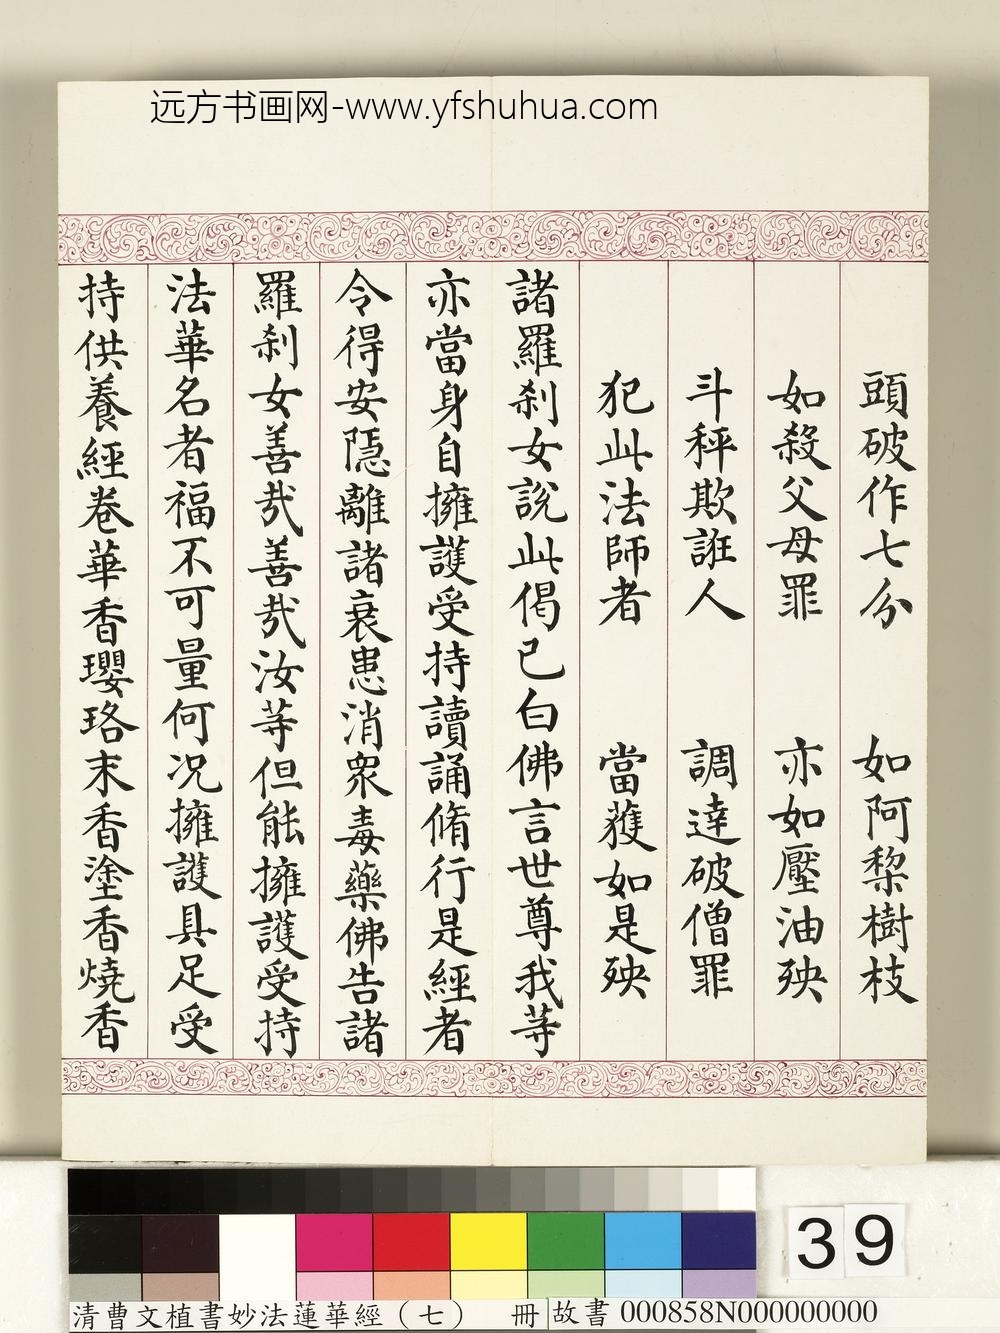 远方书画网-www.yfshuhua.com
頭破作七分　如阿棃樹枝
如殺父母罪　亦如壓油殃
斗秤欺誑人　調達破僧罪
犯此法師者　當獲如是殃
諸羅刹女說此偈已白佛言世尊我等
亦當身自擁護受持讀誦脩行是經者
令得安隱離諸衰患消衆毒藥佛告諸
羅刹女善哉善哉汝等但能擁護受持
法華名者福不可量何况擁護具足受
持供養經卷華香瓔珞末香塗香燒香
39
清曹文植書妙法蓮華經（七）　冊
故書 000858N000000000